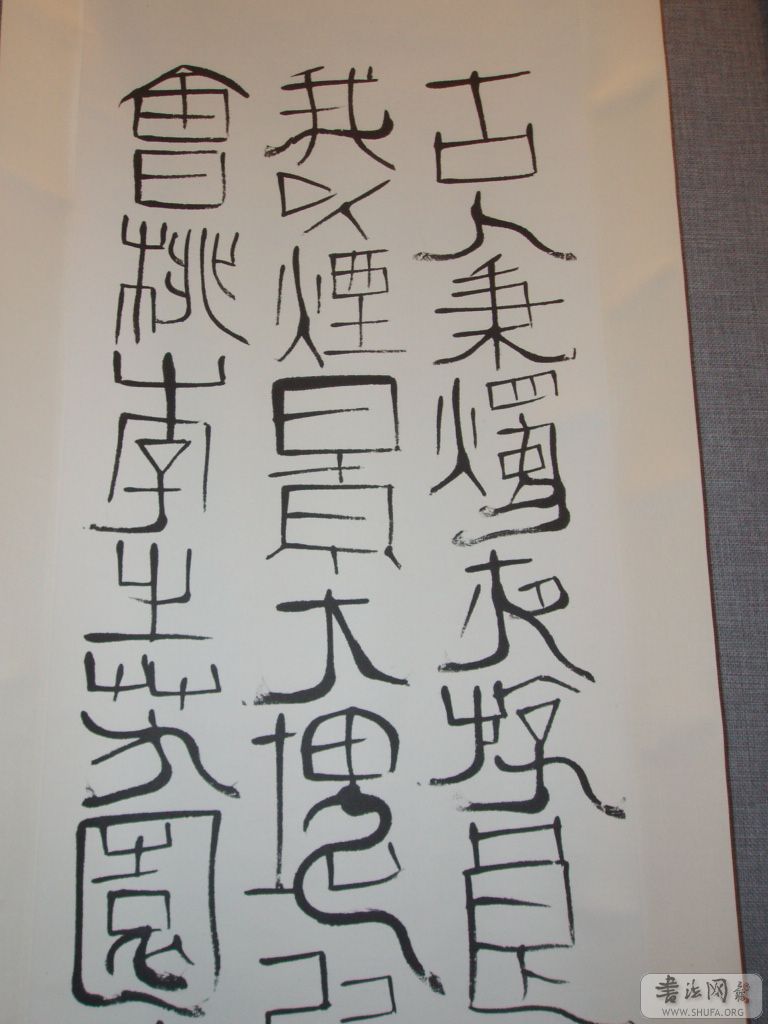 古人秉燭夜游良
我以煙景大塊
會桃李之芳園
书法网
WWW.SHUFA.ORG